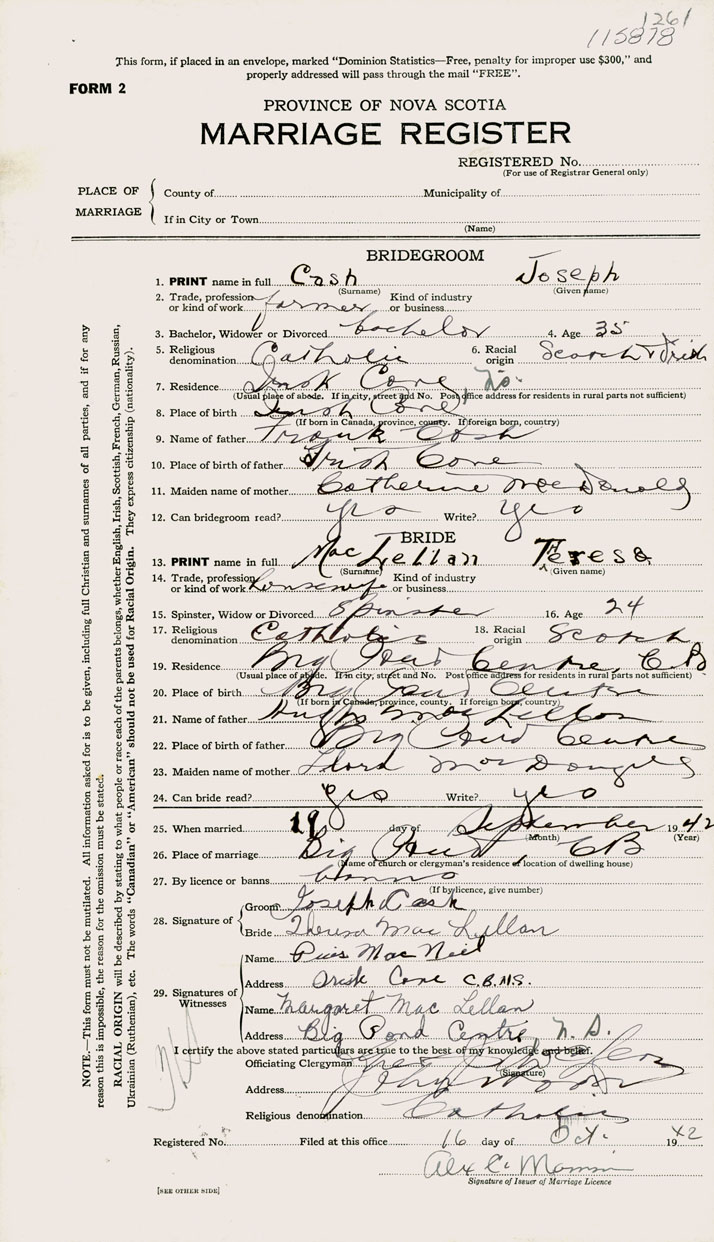 1261
115878
This form, if placed in an envelope, marked "Dominion Statistics—Free, penalty for improper use $300," and
properly addressed will pass through the mail "FREE".
FORM 2
PROVINCE OF NOVA SCOTIA
MARRIAGE REGISTER
REGISTERED No.
(For use of Registrar General only)
PLACE OF MARRIAGE
County of Municipality of
If in City or Town
(Name)
BRIDEGROOM
1. PRINT name in full Cash Joseph
(Surname) (Given name)
2. Trade, profession or kind of work farmer Kind of industry or business
3. Bachelor, Widower or Divorced bachelor 4. Age 35
5. Religious denomination Catholic 6. Racial origin Scotch & Irish
7. Residence Irish Cove
(Usual place of abode. If in city, street and No. Post office address for residents in rural parts not sufficient)
8. Place of birth Irish Cove
(If born in Canada, province, county. If foreign born, country)
9. Name of father Frank Cash
10. Place of birth of father Irish Cove
11. Maiden name of mother Catherine MacDonald
12. Can bridegroom read? yes Write? yes
BRIDE
13. PRINT name in full MacLellan Teresa
(Surname) (Given name)
14. Trade, profession or kind of work housewife Kind of industry or business
15. Spinster, Widow or Divorced Spinster 16. Age 24
17. Religious denomination Catholic 18. Racial origin Scotch
19. Residence Big Pond Centre, C.B.
(Usual place of abode. If in city, street and No. Post office address for residents in rural parts not sufficient)
20. Place of birth Big Pond Centre
(If born in Canada, province, county. If foreign born, country)
21. Name of father MacLellan
22. Place of birth of father Big Pond Centre
23. Maiden name of mother Flora MacDougall
24. Can bride read? yes Write? yes
25. When married 19 day of September 1942
(Month) (Year)
26. Place of marriage Big Pond, CB
(Name of church or clergyman's residence or location of dwelling house)
27. By licence or banns banns
(If by licence, give number)
28. Signature of
Groom Joseph Cash
Bride Theresa MacLellan
29. Signatures of Witnesses
Name Pius MacNeil
Address Irish Cove C.B.N.S.
Name Margaret MacLellan
Address Big Pond Centre, N.S.
I certify the above stated particulars are true to the best of my knowledge and belief.
Officiating Clergyman
(Signature)
Address
Religious denomination Catholic
Registered No. Filed at this office 16 day of Oct. 1942
Alex C.
Signature of Issuer of Marriage Licence
[SEE OTHER SIDE]
NOTE.—This form must not be mutilated. All information asked for is to be given, including full Christian and surnames of all parties, and if for any
reason this is impossible, the reason for the omission must be stated.
RACIAL ORIGIN will be described by stating to what people or race each of the parents belongs, whether English, Irish, Scottish, French, German, Russian,
Ukrainian (Ruthenian), etc. The words "Canadian" or "American" should not be used for Racial Origin. They express citizenship (nationality).